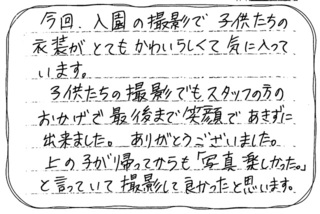 今回、入園の撮影で子供たちの
衣装がとてもかわいらしくて気に入って
います。
子供たちの撮影でもスタッフの方の
おかげで最後まで笑顔であきずに
出来ました。ありがとうございました。
上の子が帰ってからも「写真楽しかった。」
と言っていて撮影して良かったと思います。